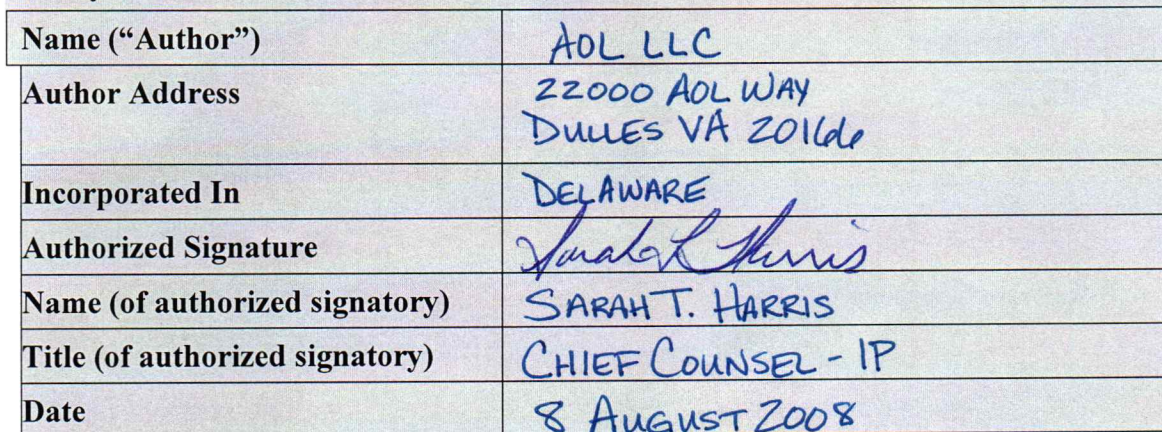 Name (“Author”) AOL LLC
Author Address 22000 AOL WAY
DULLES VA 20166
Incorporated In DELAWARE
Authorized Signature
Name (of authorized signatory) SARAH T. HARRIS
Title (of authorized signatory) CHIEF COUNSEL - IP
Date 8 AUGUST 2008